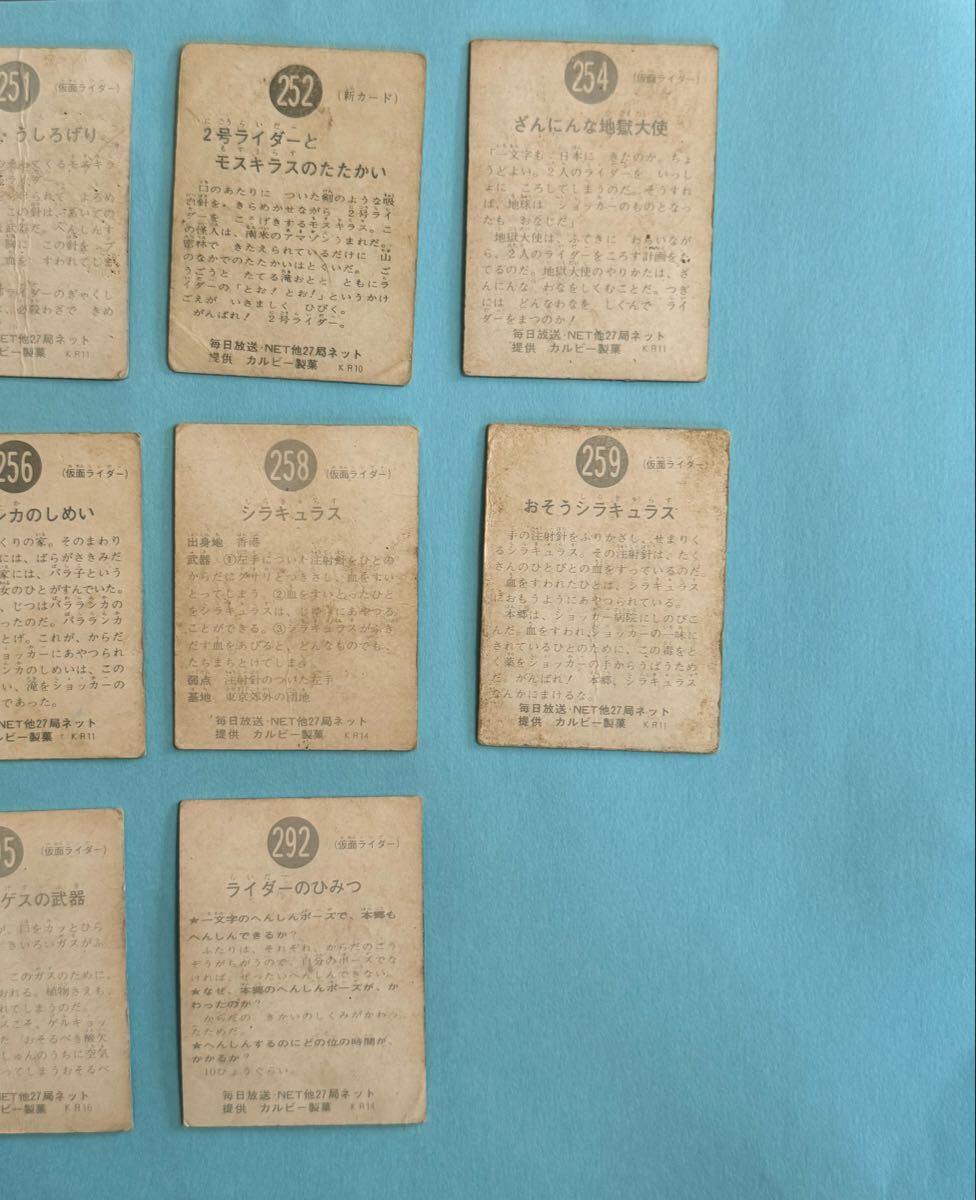 251
(仮面ライダー)
うしろげり
この針は、あいての
武器だ。へんしんす
胸に この針を ブ
血を すわれてしま
ライダーのぎゃくし
は、必殺わざで きめ
NET他27局ネット
ルビー製菓 KR11
252
(新カード)
2号ライダーと
モスキラスのたたかい
口のあたりに ついた剣のような吸
血針を、きらめかせながら 2号ライ
ダーを こうげきするモスキラス。こ
の怪人は、南米のアマゾンうまれだ。
密林で きたえられているだけに 山
のなかでのたたかいはとくいだ。 ご
うごうと たてる滝おとと ともにラ
イダーの「とお! とお!」というかけ
ごえが いさましく ひびく。
がんばれ! 2号ライダー。
毎日放送・NET他27局ネット
提供 カルビー製菓 KR10
254
(仮面ライダー)
ざんにんな地獄大使
「一文字も 日本に きたのか。ちょ
うどよい。2人のライダーを いっし
ょに ころしてしまうのだ。そうすれ
ば、地球は ショッカーのものとなっ
たも おなじだ」
地獄大使は、ふてきに わらいなが
ら、2人のライダーをころす計画をた
てるのだ。地獄大使のやりかたは、ざ
んにんな わなをしくむことだ。つぎ
には どんなわなを しくんで ライ
ダーをまつのか!
毎日放送・NET他27局ネット
提供 カルビー製菓 KR11
256
(仮面ライダー)
シカのしめい
くりの家。そのまわり
には、ばらがさきみだ
家には、バラ子という
女のひとがすんでいた。
、じつはバラランカの
ったのだ。バラランカ
とげ。これが、からだ
ョッカーにあやつられ
ンカのしめいは、この
い、滝をショッカーの
であった。
NET他27局ネット
ルビー製菓 KR11
258
(仮面ライダー)
シラキュラス
出身地 香港
武器 ①左手についた注射針をひとの
からだにグサリとつきさし、血をすい
とってしまう。②血をすいとったひと
をシラキュラスは、じゆうにあやつる
ことができる。③シラキュラスがふき
だす血をあびると、どんなものでも、
たちまちとけてしまう
弱点 注射針のついた左手
基地 東京郊外の団地
毎日放送・NET他27局ネット
提供 カルビー製菓 KR14
259
(仮面ライダー)
おそうシラキュラス
手の注射針をふりかざし、せまりく
るシラキュラス。その注射針は、たく
さんのひとびとの血をすっているのだ
血をすわれたひとは、シラキュラス
におもうようにあやつられている。
本郷は、ショッカー病院にしのびこ
んだ。血をすわれ、ショッカーの一味に
されているひとのために、この毒をと
く薬をショッカーの手からうばうため
だ。がんばれ! 本郷、シラキュラス
なんかにまけるな。
毎日放送・NET他27局ネット
提供 カルビー製菓 KR11
5
(仮面ライダー)
ゲスの武器
が、口をカッとひら
きいろいガスがふ
、このガスのために、
おれる。植物さえも、
れてしまうのだ。
スこそ、ゲルショッ
た おそるべき酸欠
しゅんのうちに空気
ってしまうおそるべ
NET他27局ネット
ルビー製菓 KR16
292
(仮面ライダー)
ライダーのひみつ
★一文字のへんしんポーズで、本郷も
へんしんできるか?
ふたりは、それぞれ、からだのこう
ぞうがちがうので、自分のポーズでな
ければ、ぜったいへんしんできない。
★なぜ、本郷のへんしんポーズが、か
わったのか?
からだの きかいのしくみがかわっ
たためだ。
★へんしんするのにどの位の時間が、
かかるか?
10びょうぐらい。
毎日放送・NET他27局ネット
提供 カルビー製菓 KR14